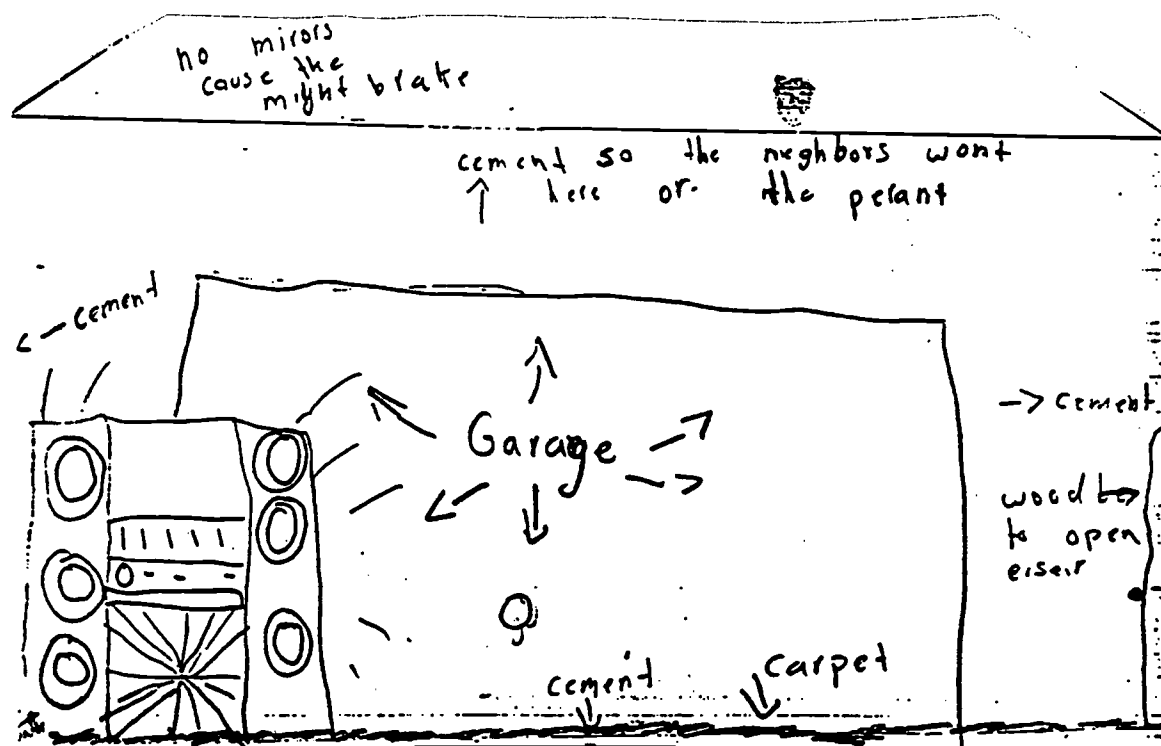 no mirors
cause the
might brake
cement so the neghbors wont
here or the perant
cement
Garage
cement
wood to
to open
eisair
cement
carpet